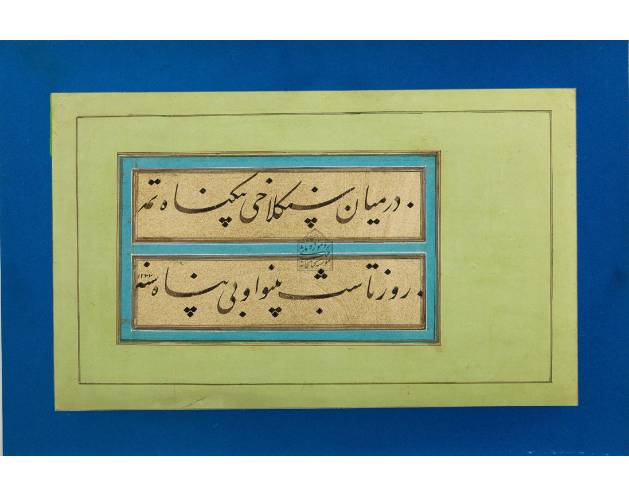 در میان سنگلاخی بیگناه
روز تا شب بینوا و بی پناه سنه ۱۲۴۳